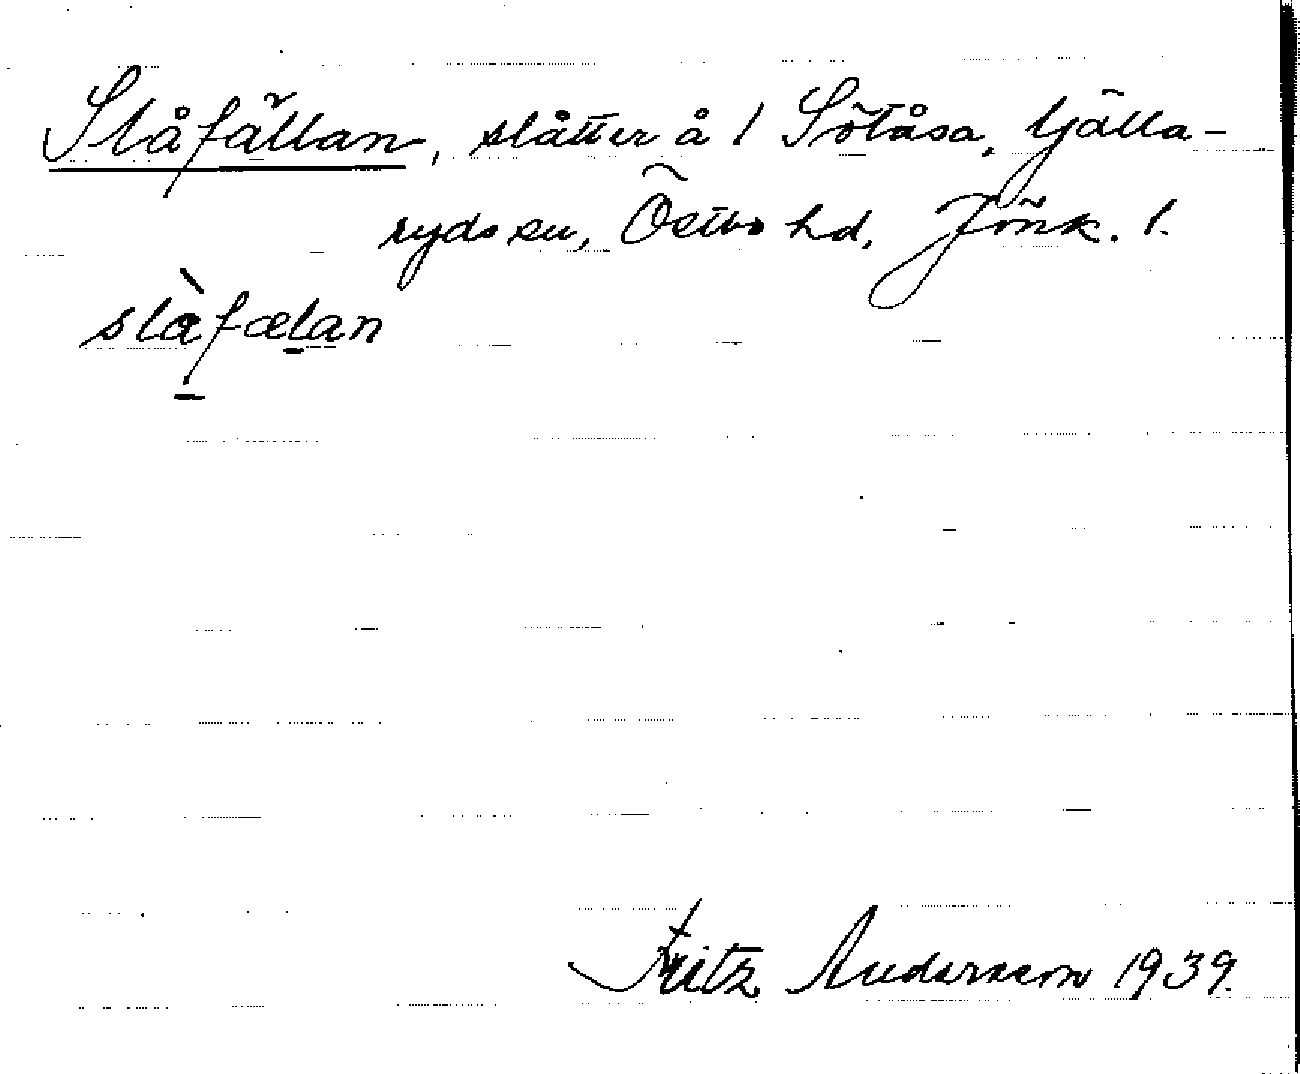 Slåfällan, slåtter å 1 Sötåsa, Gälla-
ryds sn, Östbo hd, Jönk. l.
slåfælan
Fritz Andersson 1939.